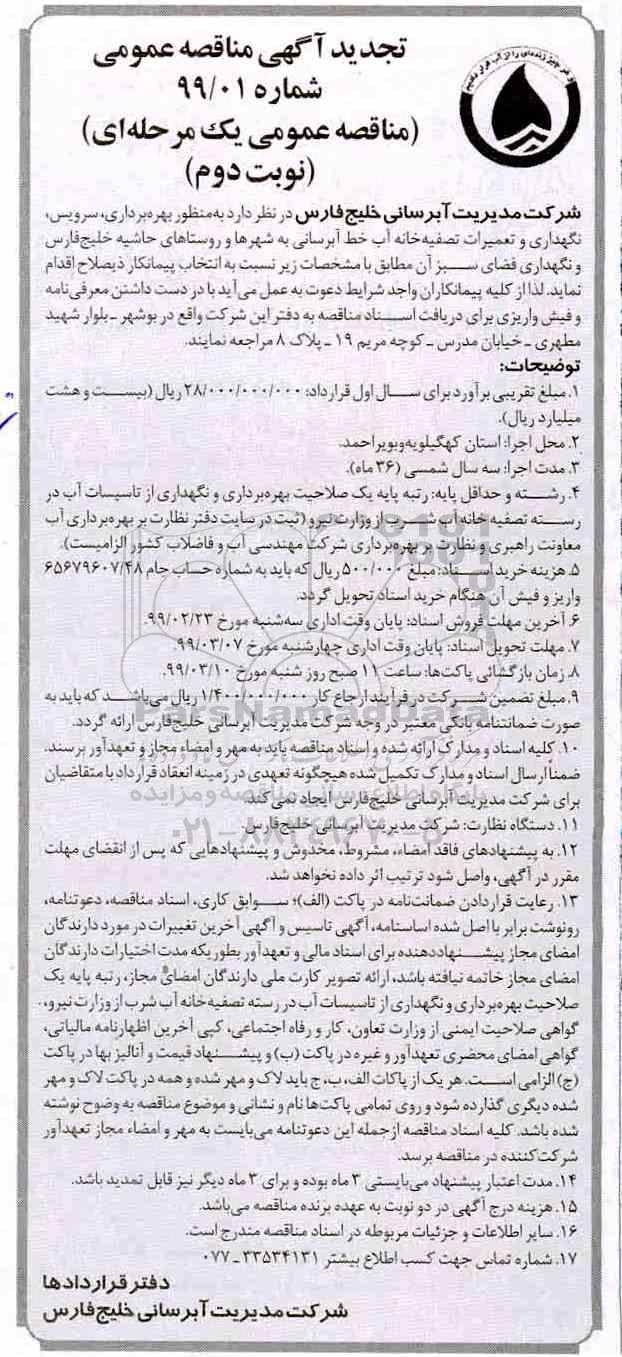 تجدید آگهی مناقصه عمومی
شماره ۹۹/۰۱
(مناقصه عمومی یک مرحله‌ای)
(نوبت دوم)
شرکت مدیریت آبرسانی خلیج‌فارس در نظر دارد به‌منظور بهره‌برداری، سرویس،
نگهداری و تعمیرات تصفیه‌خانه آب خط آبرسانی به شهرها و روستاهای حاشیه خلیج‌فارس
و نگهداری فضای سبز آن مطابق با مشخصات زیر نسبت به انتخاب پیمانکار ذیصلاح اقدام
نماید. لذا از کلیه پیمانکاران واجد شرایط دعوت به عمل می‌آید با در دست داشتن معرفی‌نامه
و فیش واریزی برای دریافت اسناد مناقصه به دفتر این شرکت واقع در بوشهر ـ بلوار شهید
مطهری ـ خیابان مدرس ـ کوچه مریم ۱۹ ـ پلاک ۸ مراجعه نمایند.
توضیحات:
۱. مبلغ تقریبی برآورد برای سال اول قرارداد: ۲۸/۰۰۰/۰۰۰/۰۰۰ ریال (بیست و هشت
میلیارد ریال).
۲. محل اجرا: استان کهگیلویه‌وبویراحمد.
۳. مدت اجرا: سه سال شمسی (۳۶ ماه).
۴. رشته و حداقل پایه: رتبه پایه یک صلاحیت بهره‌برداری و نگهداری از تاسیسات آب در
رسته تصفیه خانه آب شرب از وزارت نیرو (ثبت در سایت دفتر نظارت بر بهره‌برداری آب
معاونت راهبری و نظارت بر بهره‌برداری شرکت مهندسی آب و فاضلاب کشور الزامیست).
۵. هزینه خرید اسناد: مبلغ ۵۰۰/۰۰۰ ریال که باید به شماره حساب جام ۶۵۶۷۹۶۰۷/۴۸
واریز و فیش آن هنگام خرید اسناد تحویل گردد.
۶. آخرین مهلت فروش اسناد: پایان وقت اداری سه‌شنبه مورخ ۹۹/۰۲/۲۳.
۷. مهلت تحویل اسناد: پایان وقت اداری چهارشنبه مورخ ۹۹/۰۳/۰۷.
۸. زمان بازگشائی پاکت‌ها: ساعت ۱۱ صبح روز شنبه مورخ ۹۹/۰۳/۱۰.
۹. مبلغ تضمین شرکت در فرآیند ارجاع کار ۱/۴۰۰/۰۰۰/۰۰۰ ریال می‌باشد که باید به
صورت ضمانتنامه بانکی معتبر در وجه شرکت مدیریت آبرسانی خلیج‌فارس ارائه گردد.
۱۰. کلیه اسناد و مدارک ارائه شده و اسناد مناقصه باید به مهر و امضاء مجاز و تعهدآور برسند.
ضمناً ارسال اسناد و مدارک تکمیل شده هیچگونه تعهدی در زمینه انعقاد قرارداد با متقاضیان
برای شرکت مدیریت آبرسانی خلیج‌فارس ایجاد نمی‌کند.
۱۱. دستگاه نظارت: شرکت مدیریت آبرسانی خلیج‌فارس
۱۲. به پیشنهادهای فاقد امضاء، مشروط، مخدوش و پیشنهادهایی که پس از انقضای مهلت
مقرر در آگهی، واصل شود ترتیب اثر داده نخواهد شد.
۱۳. رعایت قراردادن ضمانت‌نامه در پاکت (الف)؛ سوابق کاری، اسناد مناقصه، دعوتنامه،
رونوشت برابر با اصل شده اساسنامه، آگهی تاسیس و آگهی آخرین تغییرات در مورد دارندگان
امضای مجاز پیشنهاددهنده برای اسناد مالی و تعهدآور بطوریکه مدت اختیارات دارندگان
امضای مجاز خاتمه نیافته باشد، ارائه تصویر کارت ملی دارندگان امضای مجاز، رتبه پایه یک
صلاحیت بهره‌برداری و نگهداری از تاسیسات آب در رسته تصفیه‌خانه آب شرب از وزارت نیرو،
گواهی صلاحیت ایمنی از وزارت تعاون، کار و رفاه اجتماعی، کپی آخرین اظهارنامه مالیاتی،
گواهی امضای محضری تعهدآور و غیره در پاکت (ب) و پیشنهاد قیمت و آنالیز بها در پاکت
(ج) الزامی است. هر یک از پاکات الف، ب، ج باید لاک و مهر شده و همه در پاکت لاک و مهر
شده دیگری گذارده شود و روی تمامی پاکت‌ها نام و نشانی و موضوع مناقصه به وضوح نوشته
شده باشد. کلیه اسناد مناقصه ازجمله این دعوتنامه می‌بایست به مهر و امضاء مجاز تعهدآور
شرکت‌کننده در مناقصه برسد.
۱۴. مدت اعتبار پیشنهاد می‌بایستی ۳ ماه بوده و برای ۳ ماه دیگر نیز قابل تمدید باشد.
۱۵. هزینه درج آگهی در دو نوبت به عهده برنده مناقصه می‌باشد.
۱۶. سایر اطلاعات و جزئیات مربوطه در اسناد مناقصه مندرج است.
۱۷. شماره تماس جهت کسب اطلاع بیشتر ۳۳۵۳۴۱۳۱ ـ ۰۷۷
دفتر قراردادها
شرکت مدیریت آبرسانی خلیج‌فارس